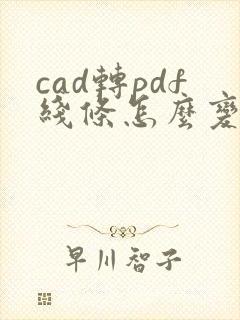 cad轉pdf
綫條怎麽變
早川智子